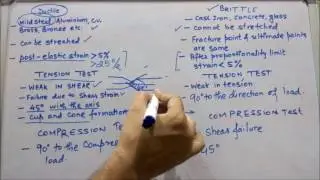 Ductile
Mild Steel, Aluminium, Cu.
Brass, Bronze etc.
- Can be stretched
- post-elastic strain > 5%
TENSION TEST
- WEAK IN SHEAR
- Failure due to Shear strain
- 45° with the axis
- Cup and Cone formation
COMPRESSION TEST
- 90° to the Compress
load.
BRITTLE
- Cast Iron, Concrete, glass
- Cannot be stretched
- Fracture point & ultimate points
are same
- After proportionality limit
strain < 5%
TENSION TEST
- Weak in tension
- 90° to the direction of load.
COMPRESSION TEST
Shear failure
45°